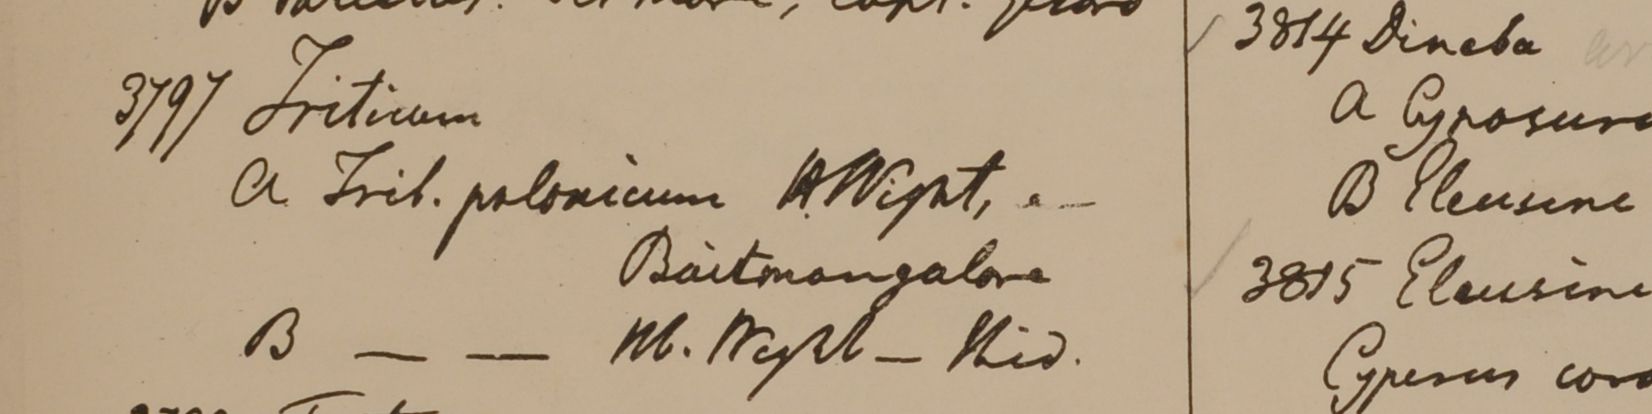 3797 Triticum
A Trit. polonicum H. Wight, a —
Baitmangalore
B — — Hb. Wight — Ibid.
3814 Dineba
A Cynosuru
B Eleusine
3815 Eleusine
Cyperus cor